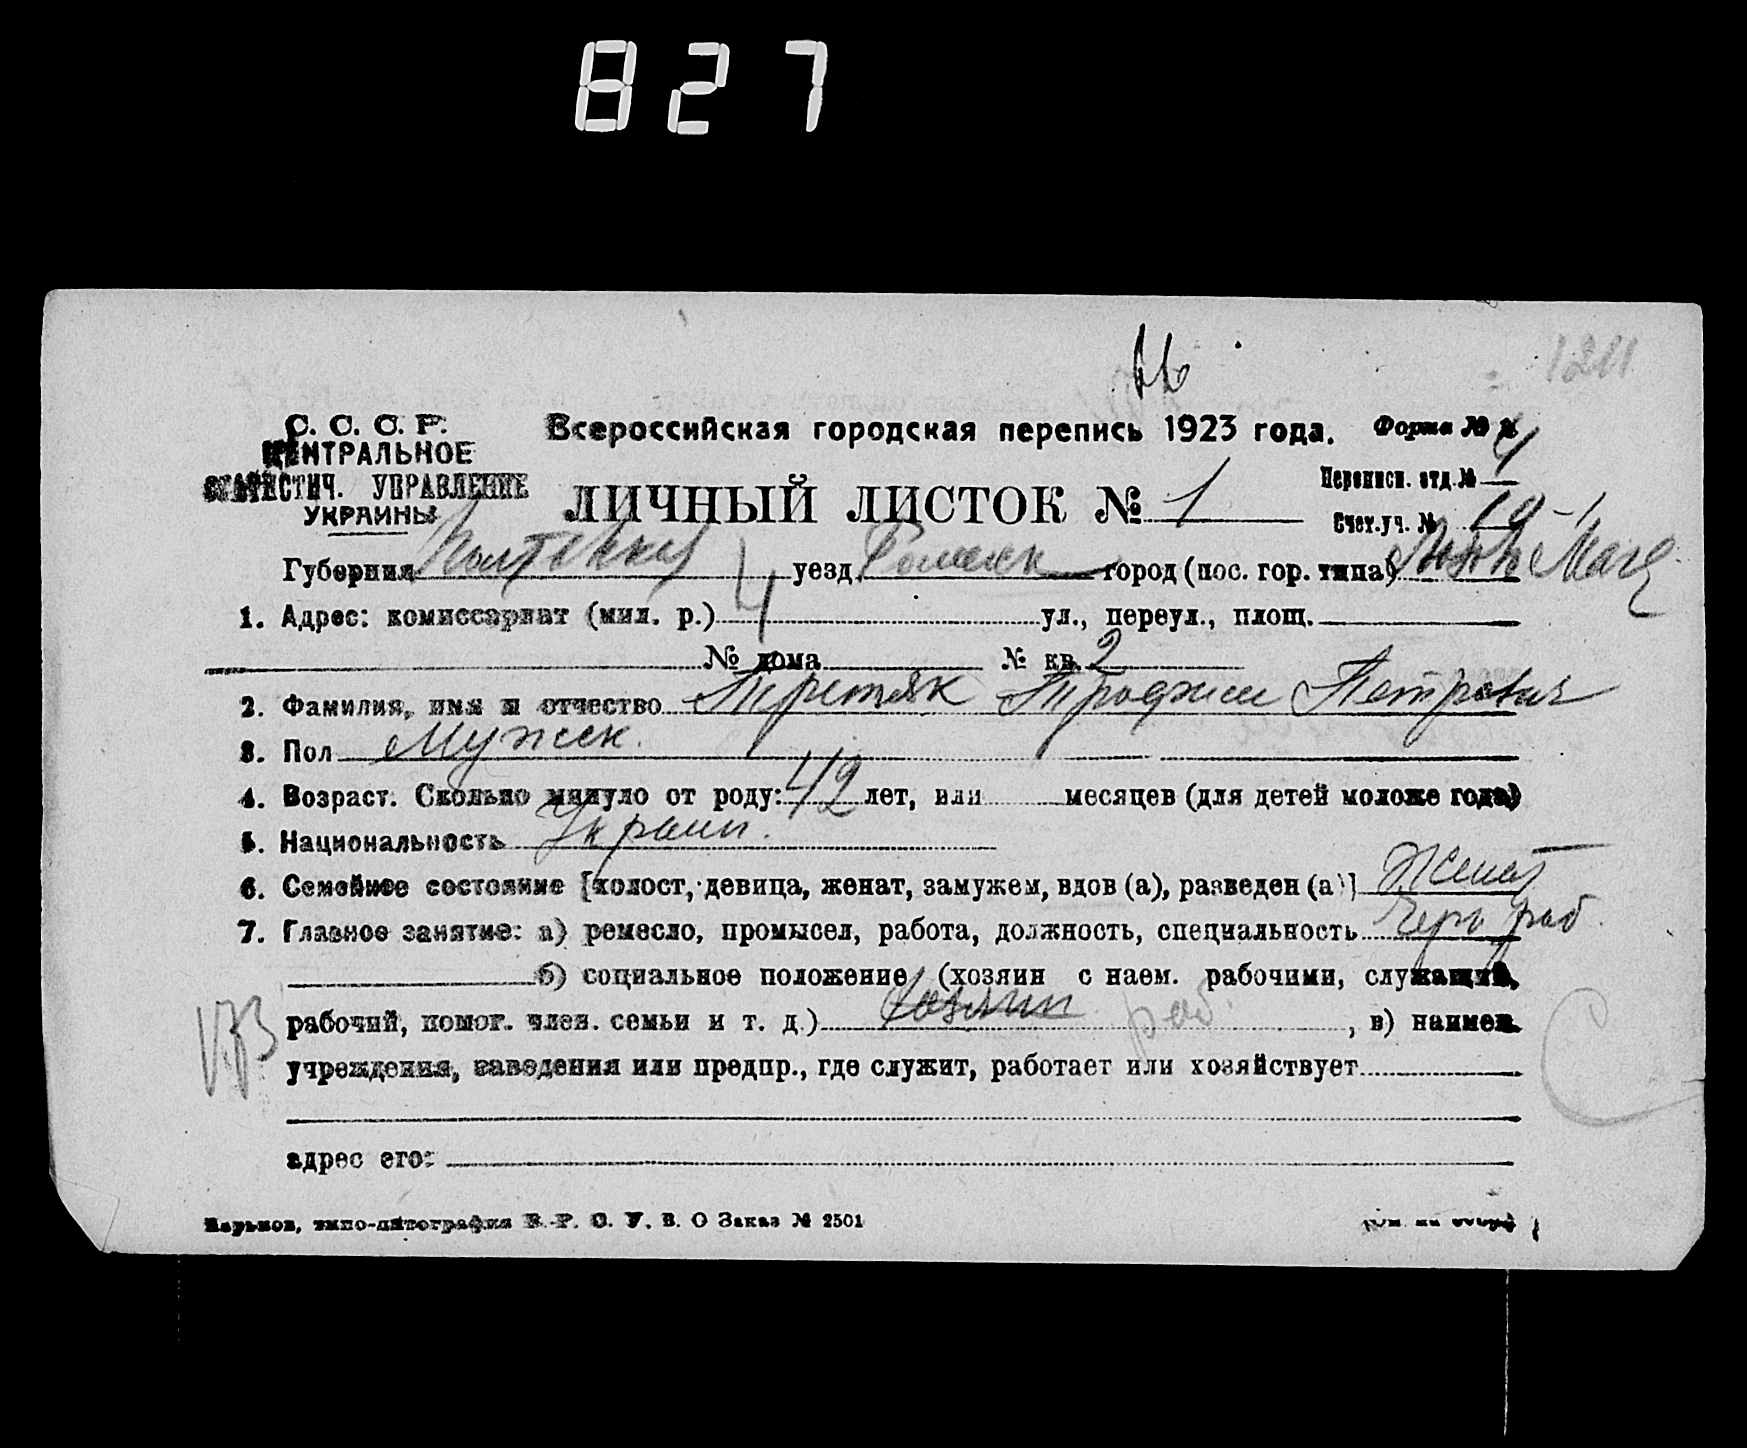 827
1211
С. С. С. Р.
ЦЕНТРАЛЬНОЕ
СТАТИСТИЧ. УПРАВЛЕНИЕ
УКРАИНЫ
Всероссийская городская перепись 1923 года.
Форма №
ЛИЧНЫЙ ЛИСТОК № 1
Переписн. отд. № 4
Счет. уч. № 19-1
Губерния Полтавская уезд Роменск город (пос. гор. типа)
1. Адрес: комиссариат (мил. р.) 4 ул., переул., площ.
№ дома № кв. 2
2. Фамилия, имя и отчество Третяк Трофим Петрович
3. Пол Мужск.
4. Возраст. Сколько минуло от роду: 42 лет, или месяцев (для детей моложе года)
5. Национальность Украин.
6. Семейное состояние [холост, девица, женат, замужем, вдов (а), разведен (а)] Женат
7. Главное занятие: а) ремесло, промысел, работа, должность, специальность Черн раб.
б) социальное положение (хозяин с наем. рабочими, служащий,
рабочий, помог. член. семьи и т. д.) хозяин раб. , в) наимен.
учреждения, заведения или предпр., где служит, работает или хозяйствует
адрес его:
Харьков, типо-литография В. Р. С. У. В. О Заказ № 2501